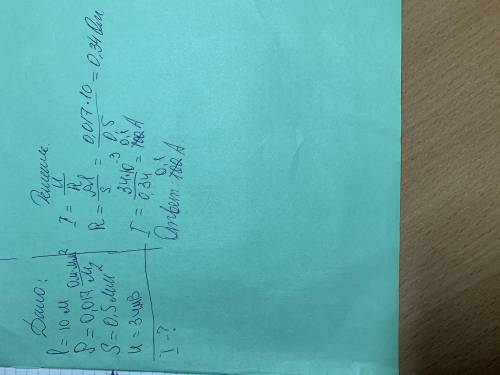 Дано:
l = 10 м
ρ = 0,017 Ом·мм²/м
S = 0,5 мм²
U = 34 мВ
I - ?
Решение
I = U/R
R = ρl/S = 0,017·10/0,5 = 0,34 Ом
I = 34·10⁻³/0,34 = 0,1 А
Ответ: 0,1 А